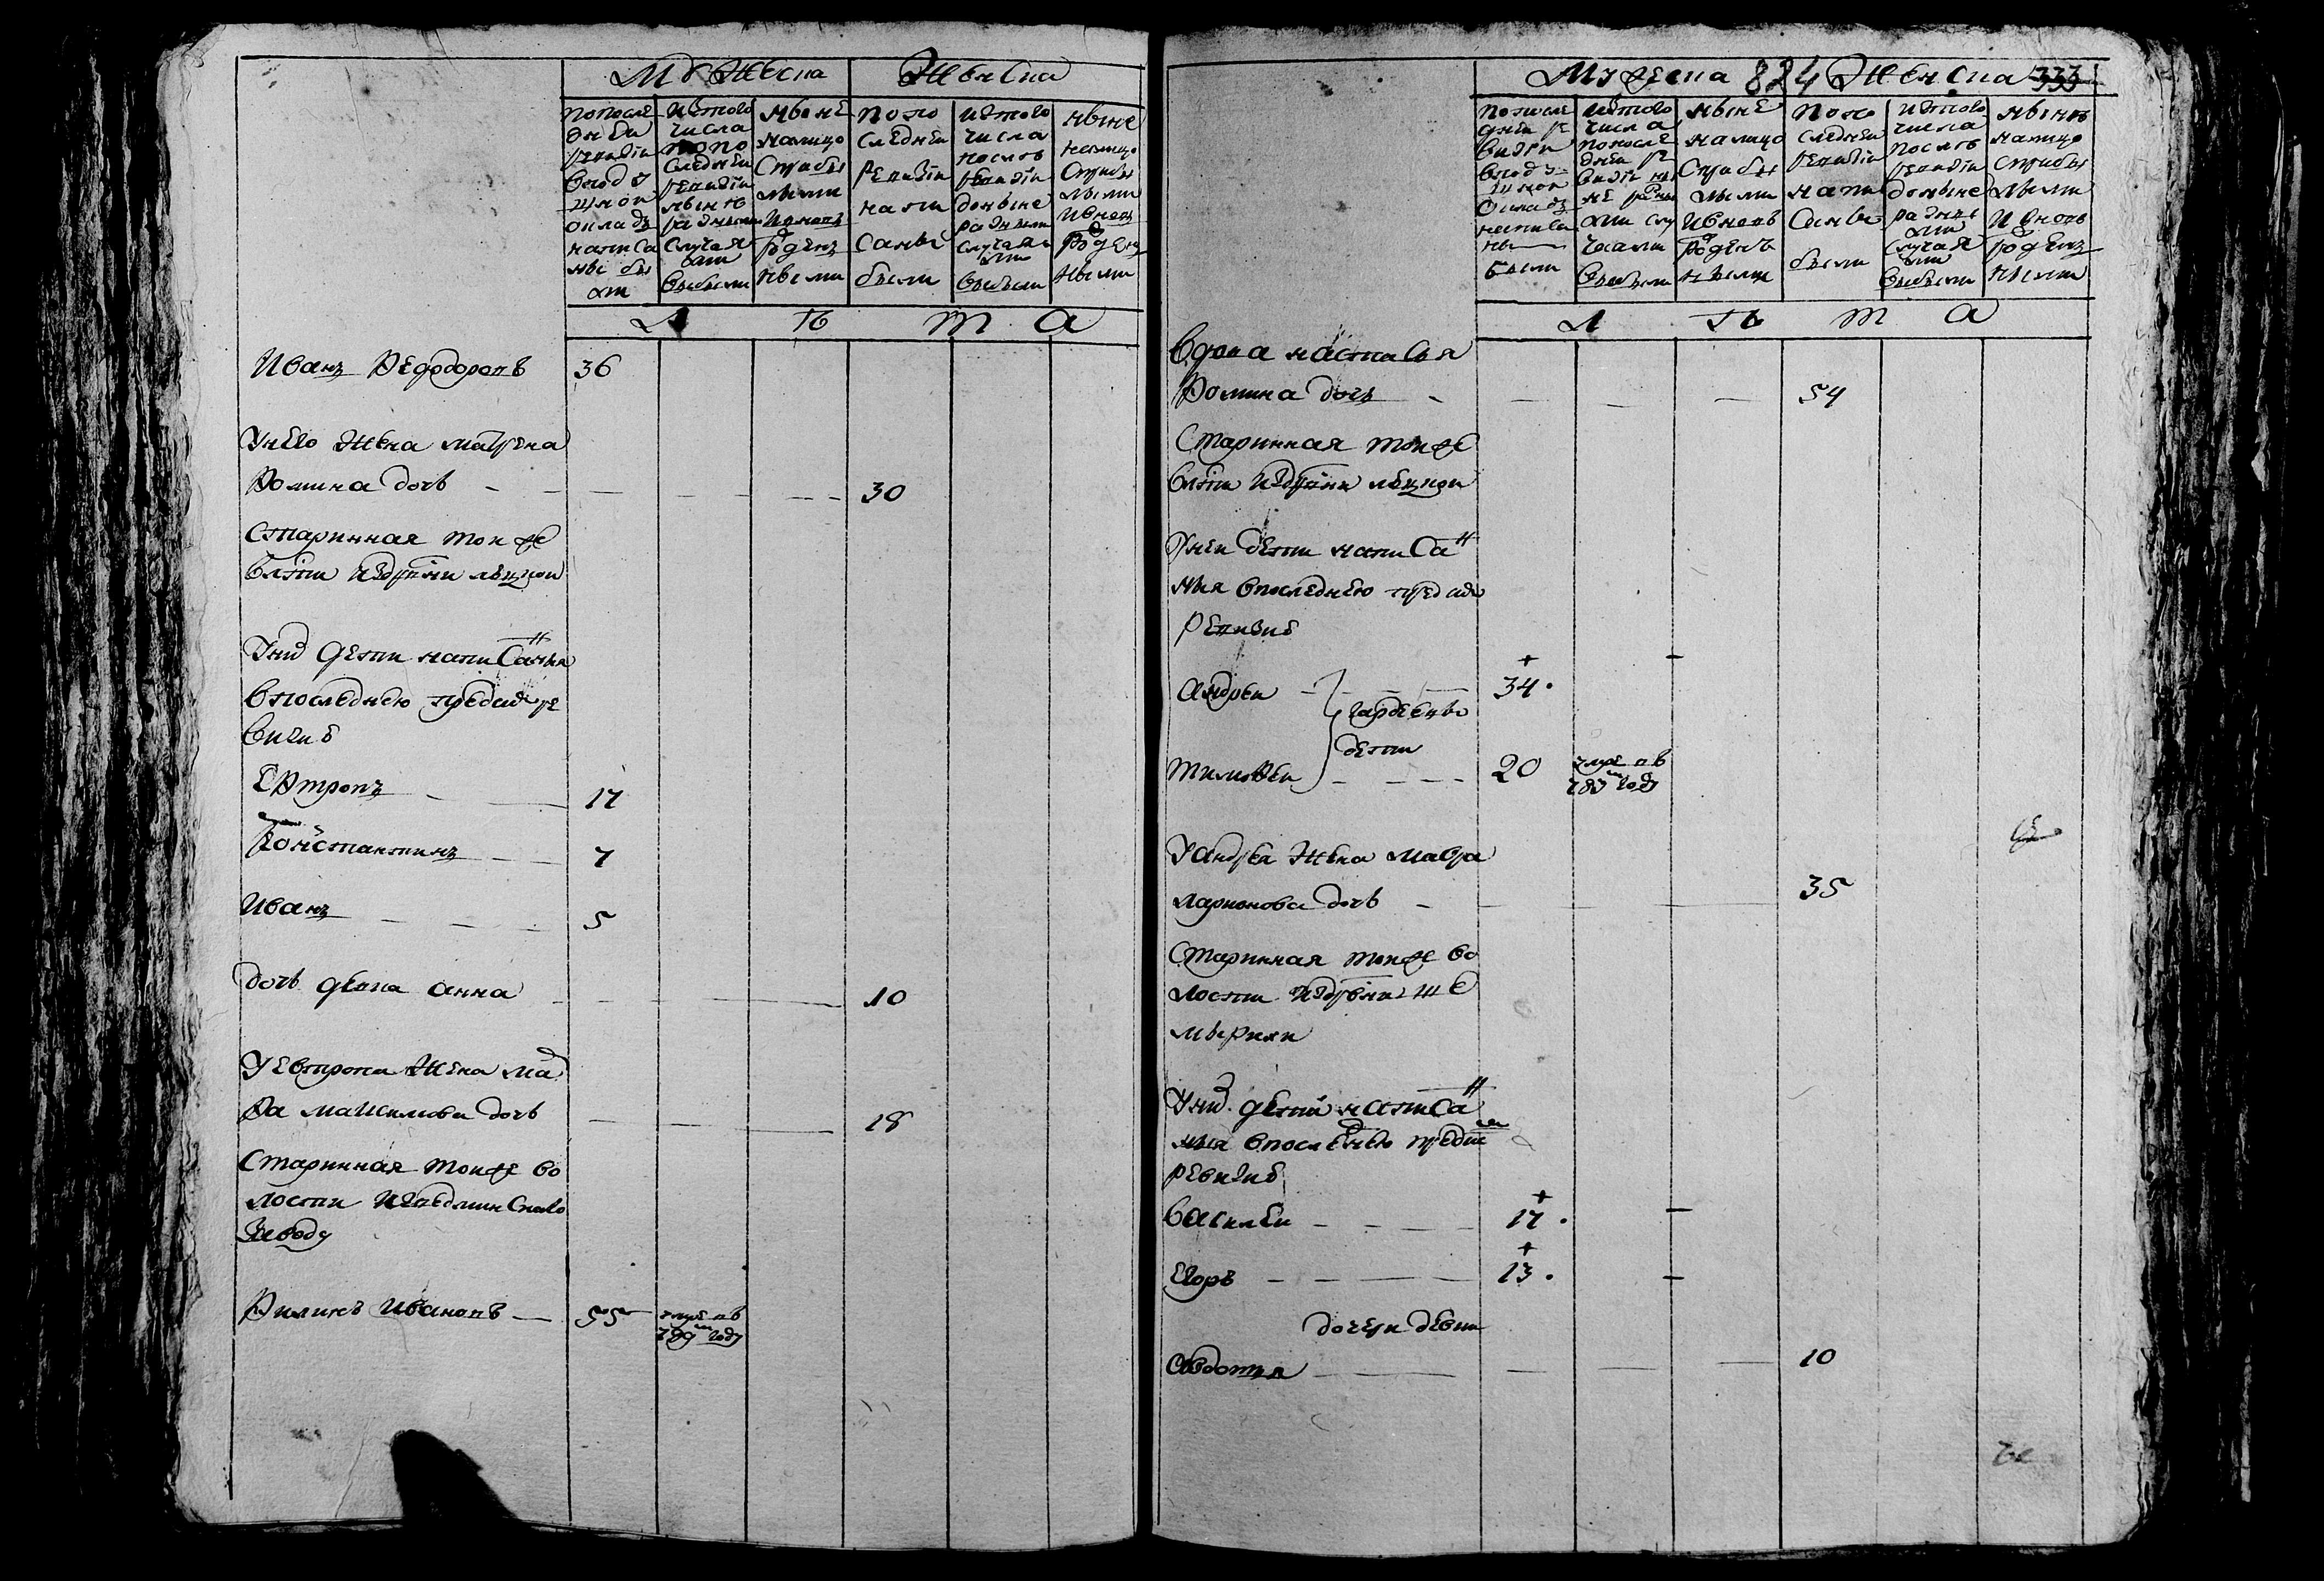 Мужеска Женска
по после
дней
ревизии
в под у
шной
оклад
написа
ны бы
ли
из того
числа
по по
следней
ревизии
ныне
разными
случая
ми
выбыли
ныне
налицо
с прибы
лыми
и вновь
рожден
ными
по по
следней
ревизии
напи
саны
были
из того
числа
после
ревизии
доныне
разными
случая
ми
выбыли
ныне
налицо
с прибы
лыми
и вновь
рожден
ными
Л ѣ т а
Иванъ Федоровъ 36
У него жена матрена
Фомина дочь 30
старинная той же
власти из дрвни
У них дети написанныя
в последнею пред сим ре
визию
Ефтропъ 17
Константинъ 7
Иванъ 5
дочь девка анна 10
У евтропа жена ма
Фа максимова дочь 18
Старинная той же во
лости
заводу
Филипъ Ивановъ 55 умре въ
789м году
Мужеска 824 Женска 333
по после
дней ре
визии
в под у
шной
оклад
написа
ны
были
из того
числа
по после
дней ре
визии
разны
ми слу
чаями
выбыли
ныне
налицо
с прибы
лыми
и вновь
рожденъ
ными
по по
следней
ревизии
напи
саны
были
из того
числа
после
ревизии
доныне
разны
ми
случая
ми
выбыли
ныне
налицо
с прибы
лыми
и вновь
рожден
ными
Л ѣ т а
Вдова настасья
Фомина дочь 54
Старинная той же
власти из дрвни
У ней дети написан
ныя в последнею пред сию
ревизию
Андреи 34
дети
тимофеи 20 умре въ
787м году
У андрея жена мавра
ларионова дочь 35
Старинная той же во
лости из дрвни ше
мыряки
У них дети написан
ныя в последнею пред сим
ревизию
Василеи 17
Егоръ 13
дочери девки
авдотья 10